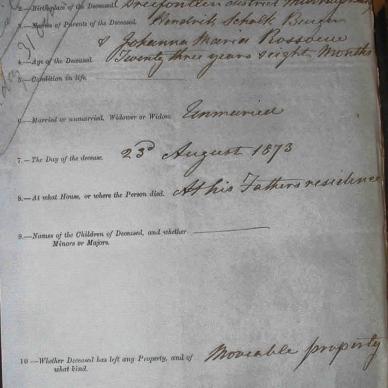 2.—Birthplace of the Deceased, Driefontein district
3.—Names of Parents of the Deceased. Hendrik Schalk Burger
& Johanna Maria
4.—Age of the Deceased. Twenty three years & eight Months
5.—Condition in life,
6.—Married or unmarried, Widower or Widow Unmarried
7.—The Day of the decease. 23d August 1873
8.—At what House, or where the Person died. At his Fathers residence
9.—Names of the Children of Deceased, and whether
Minors or Majors.
10—Whether Deceased has left any Property, and of Moveable property
what kind.